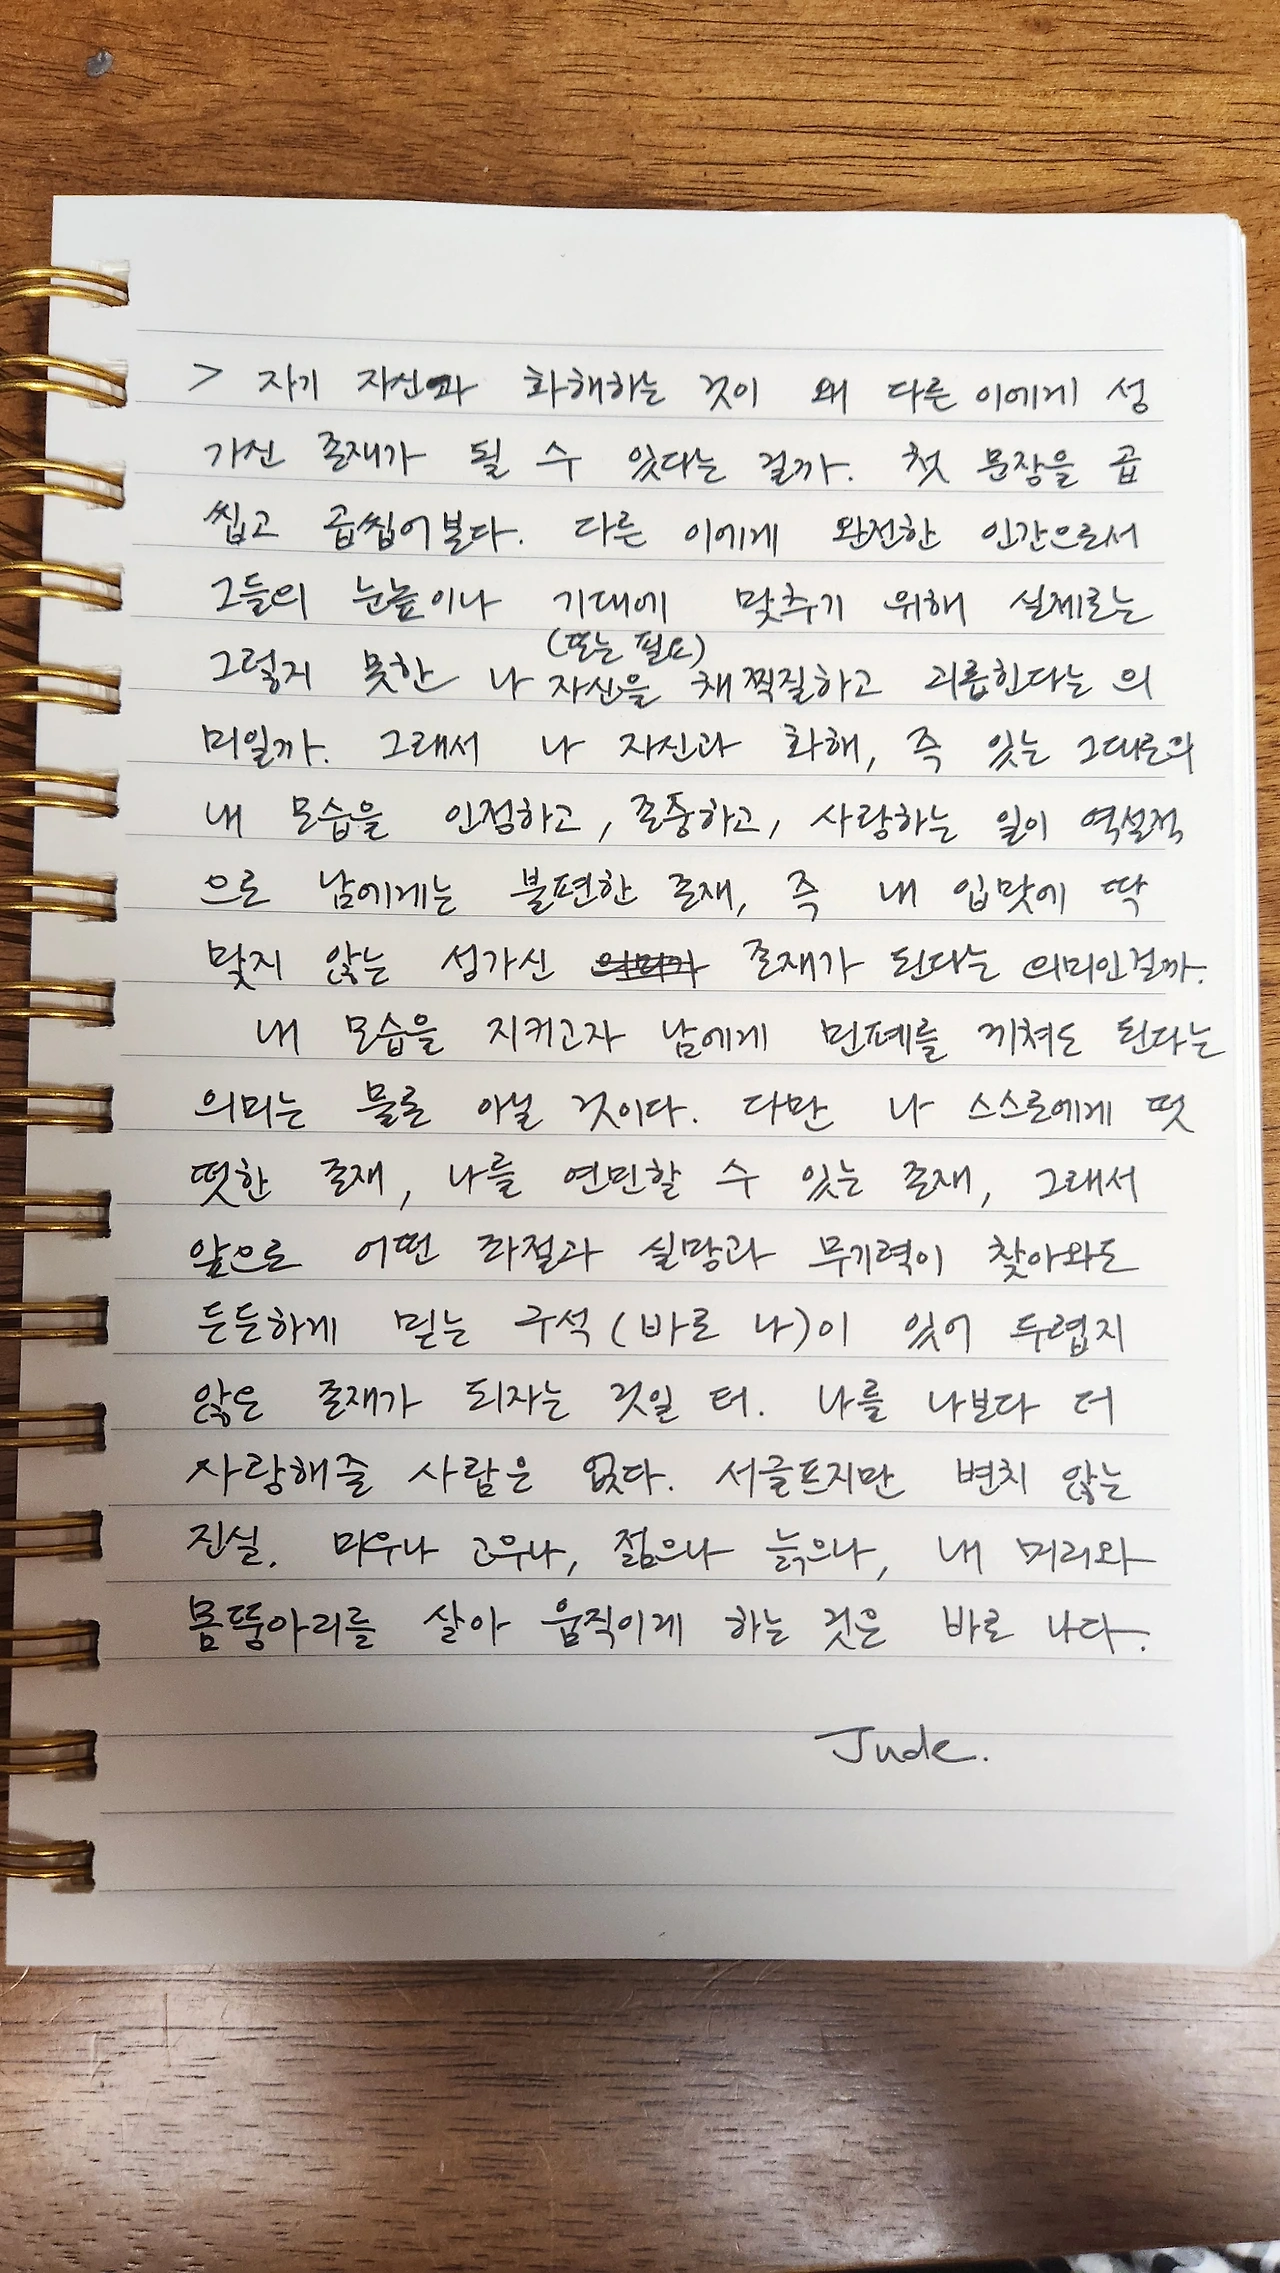 > 자기 자신과 화해하는 것이 왜 다른 이에게 성
가신 존재가 될 수 있다는 걸까. 첫 문장을 곱
씹고 곱씹어본다. 다른 이에게 완전한 인간으로서
그들의 눈높이나 기대에 맞추기 위해 실제로는
(또는 필요)
그렇지 못한 나 자신을 채찍질하고 괴롭힌다는 의
미일까. 그래서 나 자신과 화해, 즉 있는 그대로의
내 모습을 인정하고, 존중하고, 사랑하는 일이 역설적
으로 남에게는 불편한 존재, 즉 내 입맛에 딱
맞지 않는 성가신 존재가 된다는 의미인걸까.
내 모습을 지키고자 남에게 민폐를 끼쳐도 된다는
의미는 물론 아닐 것이다. 다만 나 스스로에게 떳
떳한 존재, 나를 연민할 수 있는 존재, 그래서
앞으로 어떤 좌절과 실망과 무기력이 찾아와도
든든하게 믿는 구석(바로 나)이 있어 두렵지
않은 존재가 되자는 것일 터. 나를 나보다 더
사랑해줄 사람은 없다. 서글프지만 변치 않는
진실. 미우나 고우나, 젊으나 늙으나, 내 머리와
몸뚱아리를 살아 움직이게 하는 것은 바로 나다.
Jude.